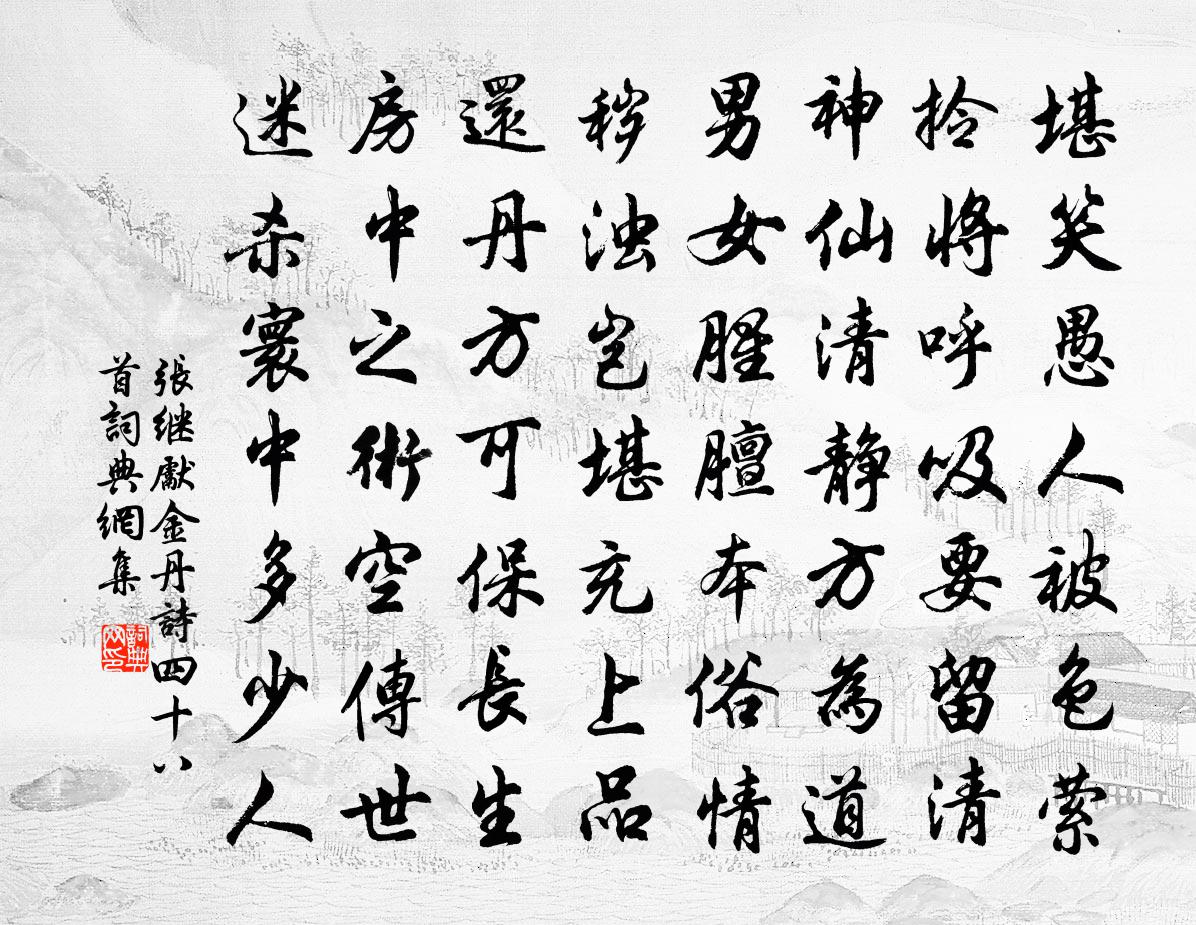 堪笑愚人被色萦
拾將呼吸要留清
神仙清静方為道
男女腥膻本俗情
秽浊岂堪充上品
還丹方可保長生
房中之術空傳世
迷杀寰中多少人
張继獻金丹詩四十八
首詞典網集
詞典
网印